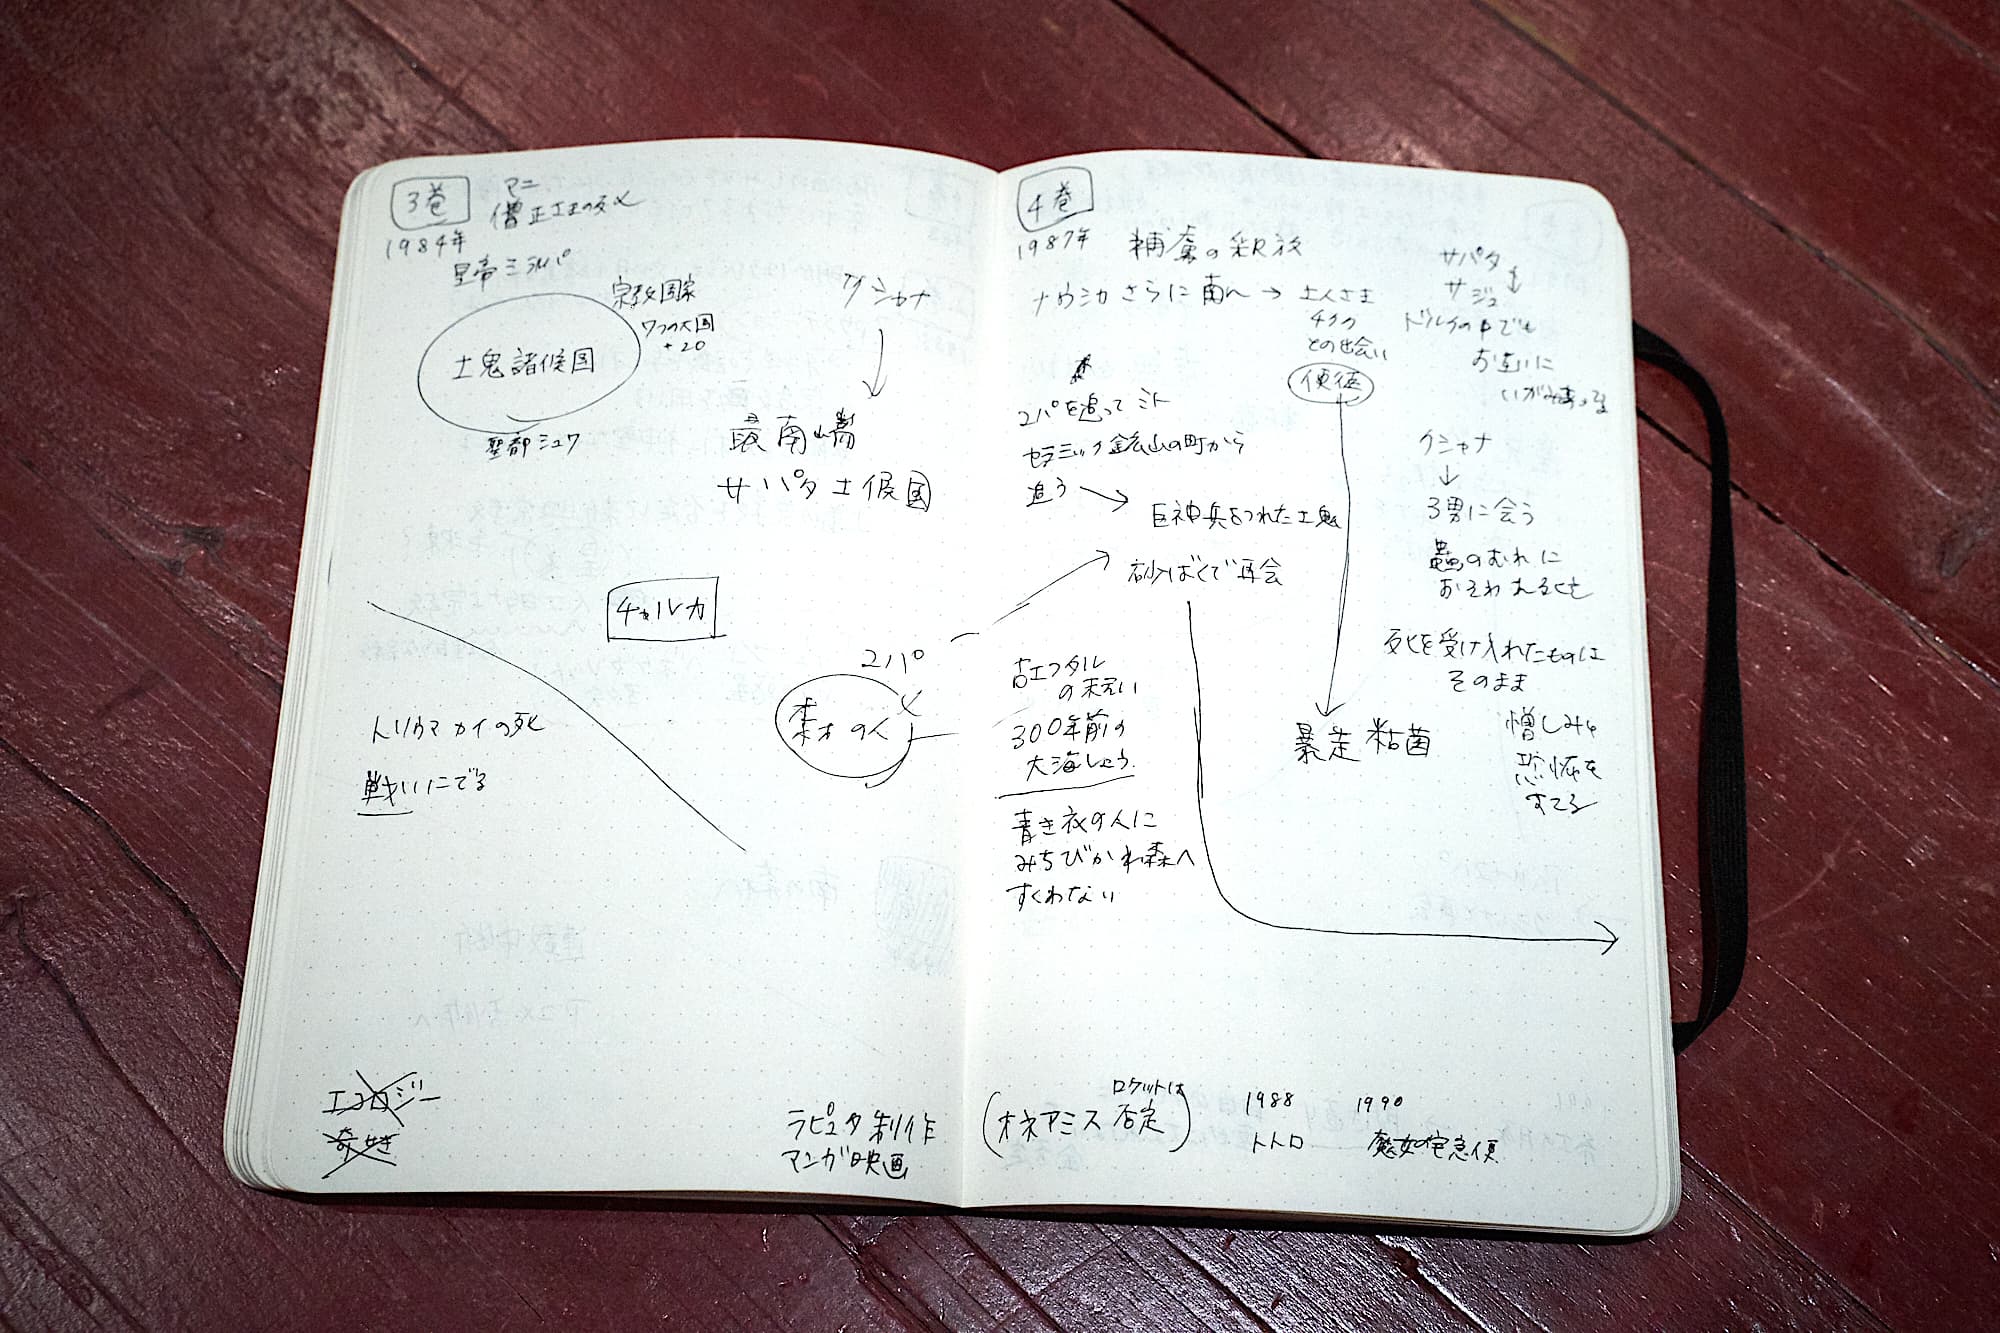 3巻
マニ
僧正土王の死
1984年
皇帝ミラルパ
宗教国家
7つの大国
+20
土鬼諸候国
聖都シュワ
クシャナ
最南端
サパタ土候国
チャルカ
ユパ
森の人
トリウマ カイの死
戦いにでる
エコロジー
奇妙
ラピュタ制作
マンガ映画
4巻
1987年
捕虜の釈放
ナウシカ さらに南へ → 土人さま
チククとの
との出会い
僧徒
サパタ
サジュ
ドルクの中でも
お互いに
いがみあってる
ユパを追って ミト
セラミック鉱山の町から
追う
巨神兵をつれた土鬼
砂ばくで再会
クシャナ
3男に会う
蟲のむれに
おそわれるとき
死を受け入れたものは
そのまま
憎しみや
恐怖を
すてる
暴走 粘菌
古エフタル
の末えい
300年前の
大海しょう
青き衣の人に
みちびかれ森へ
すくわない
ロケットは
(オネアミス 否定)
1988
トトロ
1990
魔女の宅急便